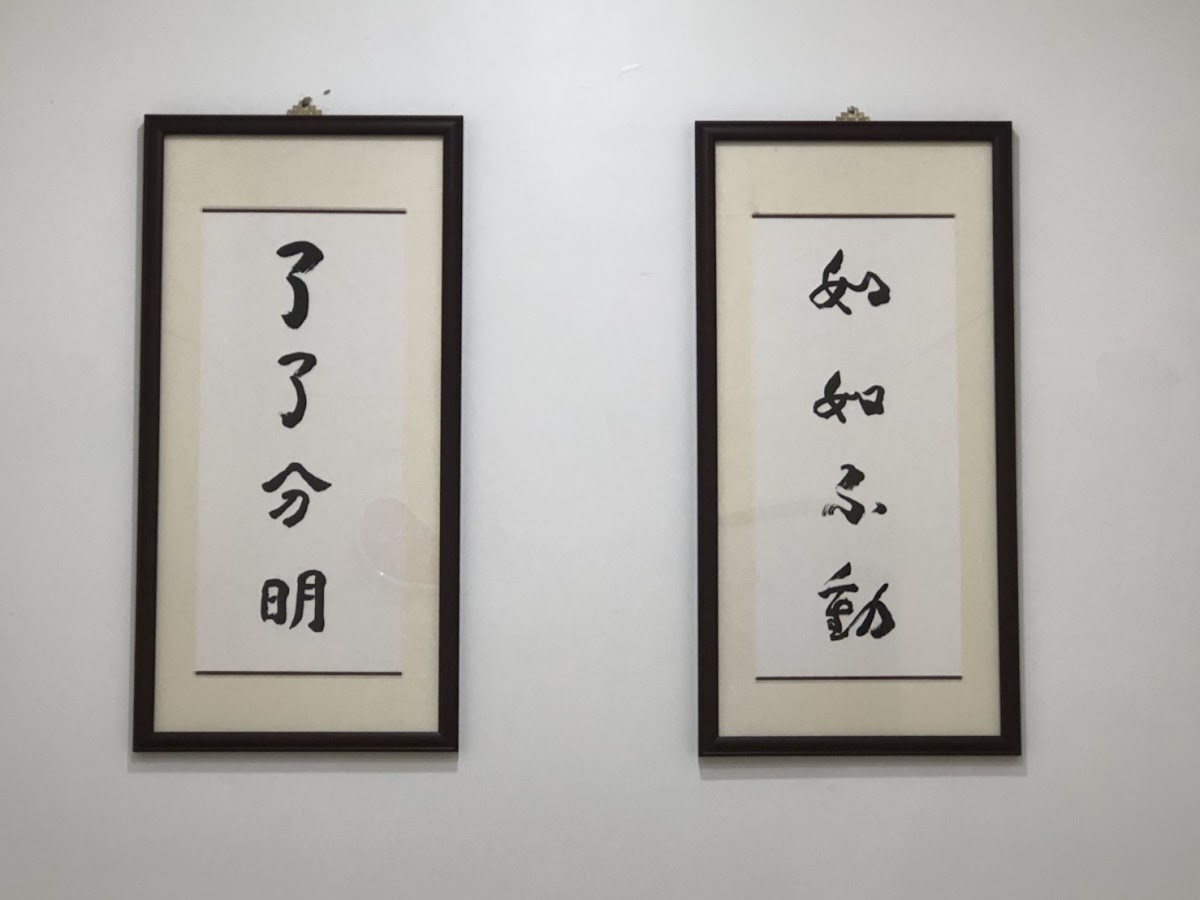 如如不動
了了分明